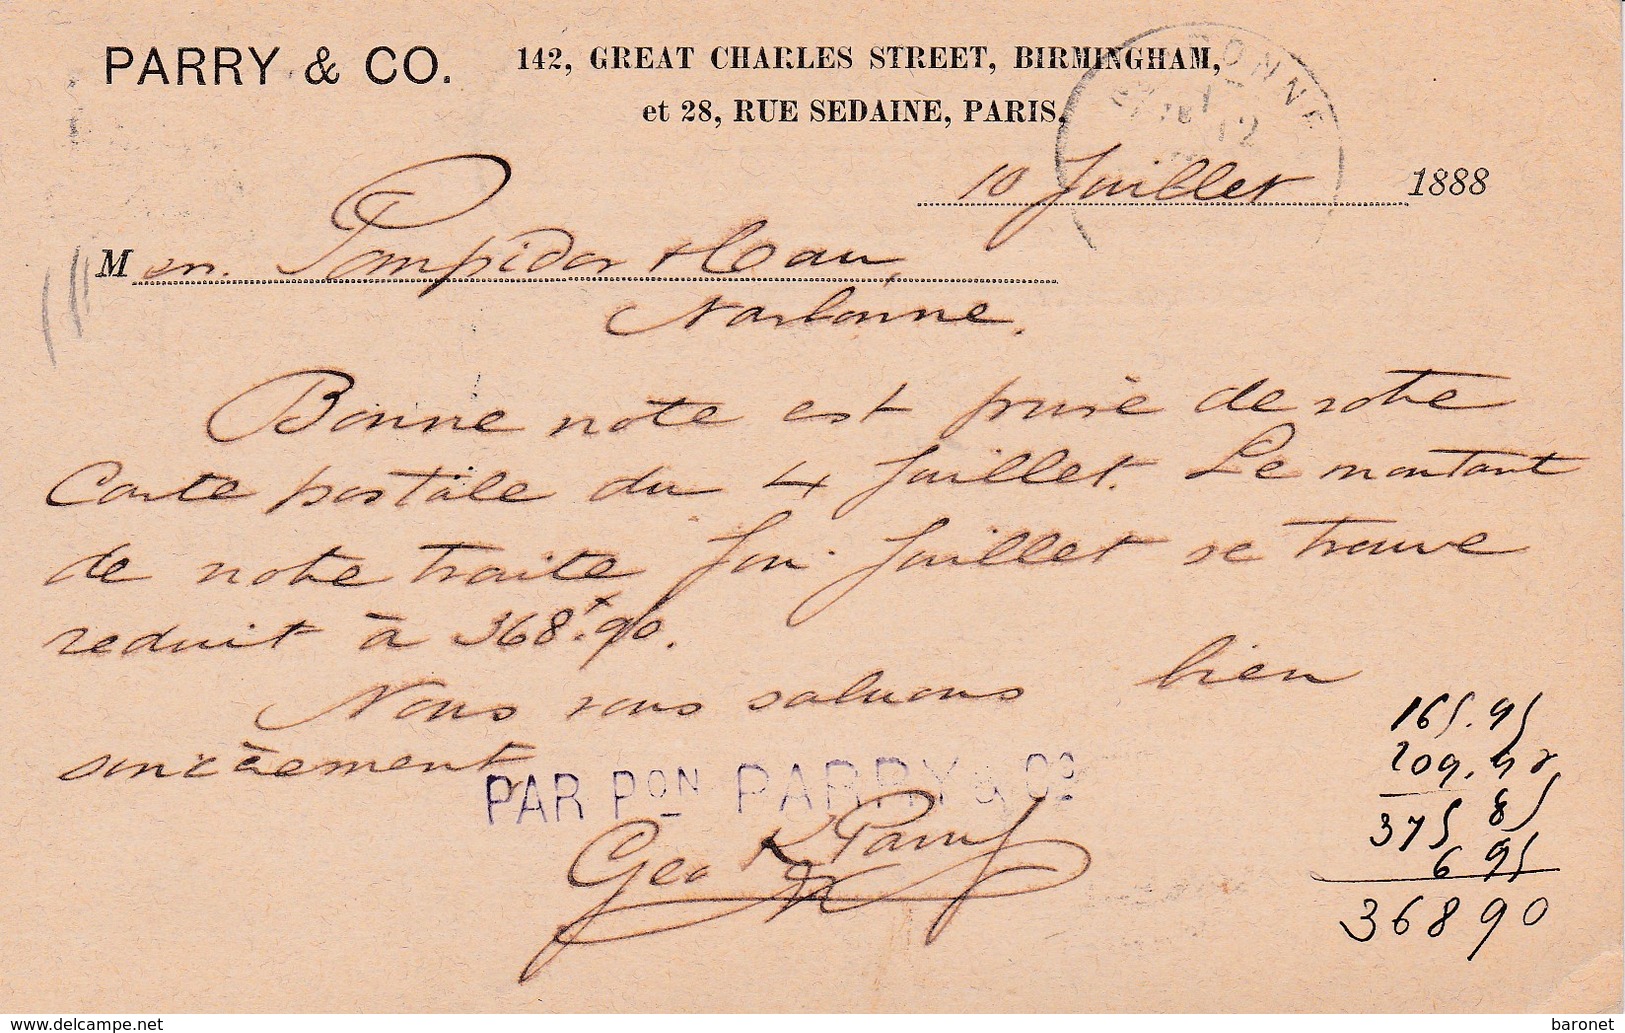 PARRY & CO.
142, GREAT CHARLES STREET, BIRMINGHAM,
et 28, RUE SEDAINE, PARIS,
10 Juillet 1888
M
Narbonne.
Bonne note est prise de votre
Carte postale du 4 Juillet. Le montant
de notre traite fin Juillet se trouve
reduit à 368f.90.
Nous vous saluons bien
sincèrement
PAR PON PARRY & Co
Geo Parry
165.95
209.90
375 85
6 95
368 90
www.delcampe.net
baronet